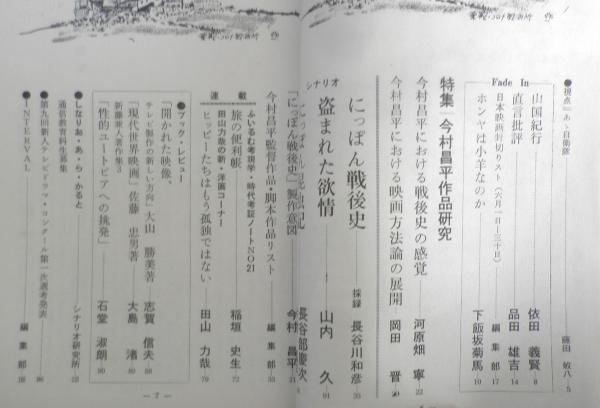 ●視点『あゝ自衛隊 藤田 敏八 5
Fade In
山国紀行 依田 義賢 8
直言批評 品田 雄吉 14
日本映画封切りスト(六月一日―三十日) 編集部 17
ホンヤは小羊なのか 下飯坂菊馬 10
特集『今村昌平作品研究
今村昌平における戦後史の感覚 河原畑 寧 22
今村昌平における映画方法論の展開 岡田 晋
シナリオ
にっぽん戦後史 採録 長谷川和彦 35
盗まれた欲情 山内 久 91
長谷部慶次
「にっぽん戦後史」製作意図 今村 昌平
今村昌平監督作品・脚本作品リスト 編集部 33
連載
ふいるむ考現学・時代考証ノートNO21
旅の便利帳 稲垣 史生 72
田山力哉の新・洋画コーナー
ヒッピーたちはもう孤独ではない 田山 力哉 79
●ブック・レビュー
「開かれた映像、
テレビ製作の新しい方向」大山 勝美著 志賀 信夫 88
「現代世界映画」佐藤 忠男著 大島 渚
新藤兼人著作集3
「性的ユートピアへの挑発」 石堂 淑朗 90
●しなりお・あ・ら・かると
通信教育科生募集 シナリオ研究所
●第九回新人テレビドラマ・コンクール第一次選考発表
●INTERVAL 編集部
― 7 ―